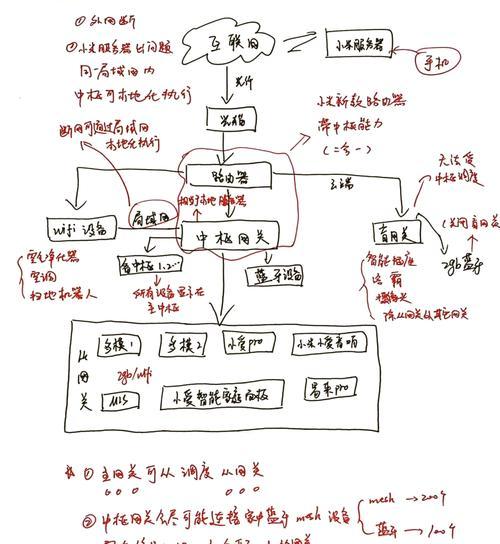 ① 外网断
② 小米服务器出问题
同一局域网内
中枢可本地化执行
互联网
小米服务器
手机
光纤
光猫
断网可通过局域网
本地化执行
小米新款路由器
带中枢能力
(二合一)
路由器
云端
无法受
中枢调度
局域网
相当于本地服务器
wifi 设备
中枢网关
盲网关
(关闭盲网关)
空气净化器
空调
扫地机器人
备中枢1.2...
蓝牙设备
智能插座
浴霸
除从网关以外其他网关
zgb 蓝牙
所有设备显示在
主中枢
从网关
多模1
多模2
小爱pro
小米小爱音响
zgb/wifi
M1S
小爱智能家庭面板
易来pro
① 主网关可从调度从网关
② 中枢网关会尽可能连接家中蓝牙 mesh 设备
mesh → 200个
蓝牙 → 100个